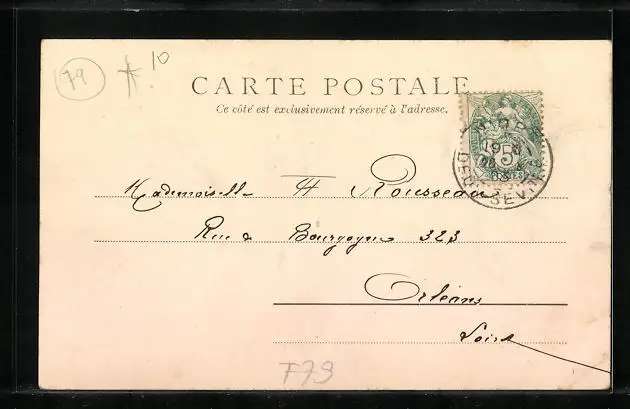 79
10
CARTE POSTALE
Ce côté est exclusivement réservé à l'adresse.
5
DEUX SEVRES
Mademoiselle H Rousseau
Rue de Bourgogne 323
Orléans
Loiret
F79